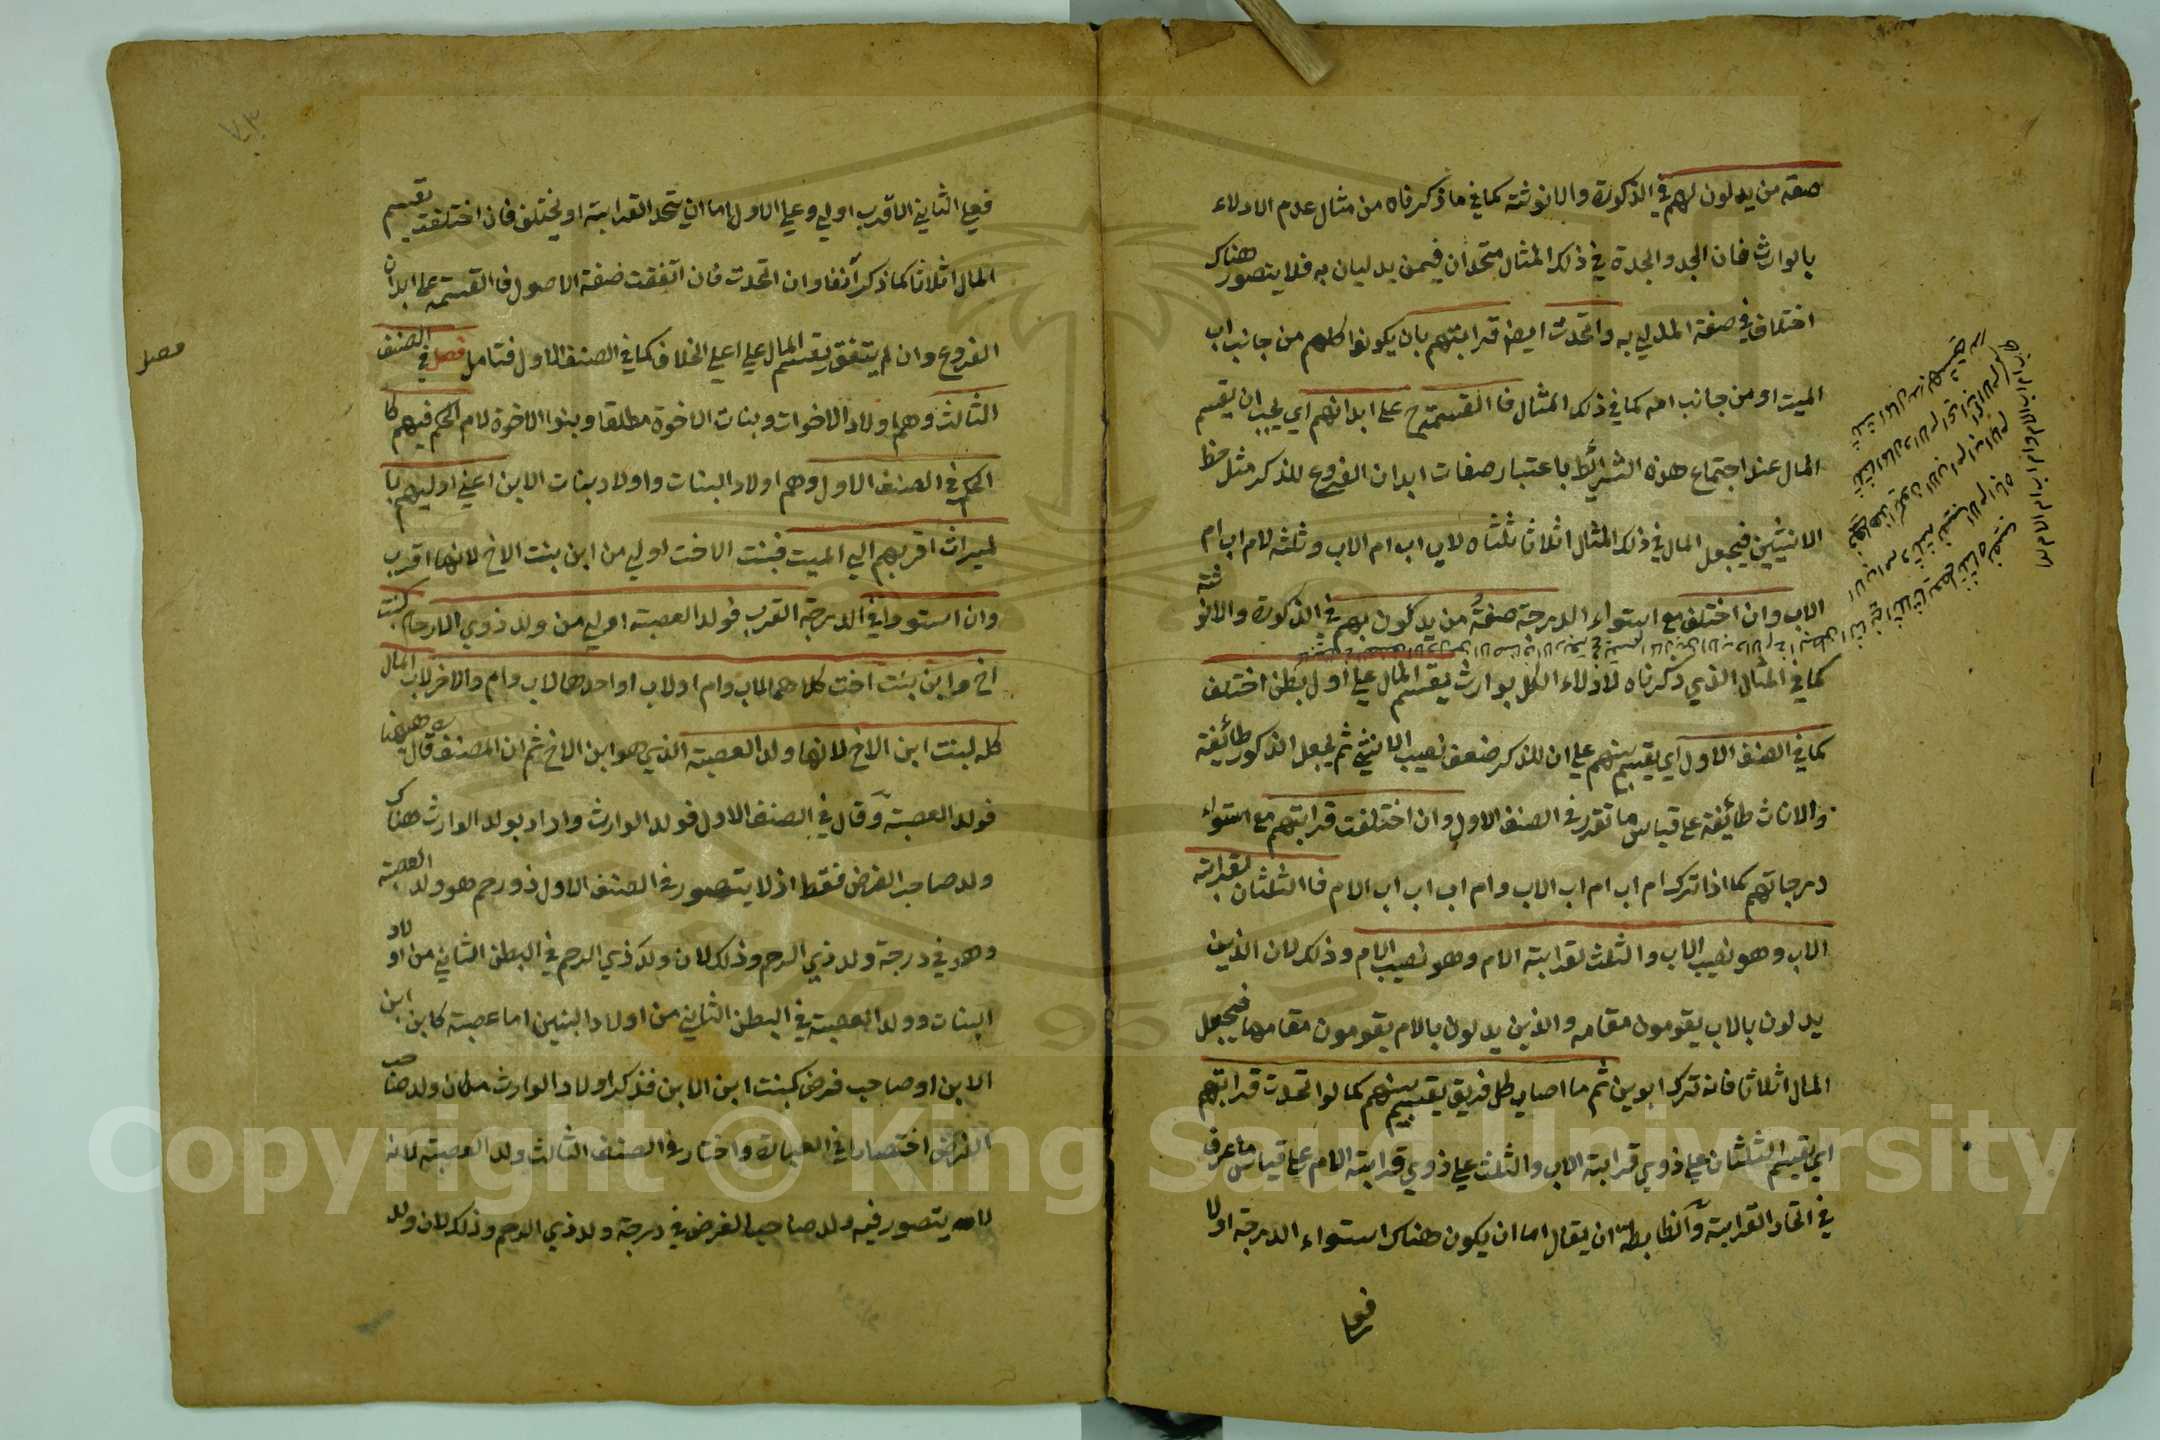 صفة من يدلون بهم في الذكورة والانوثة كما في ما ذكرناه من مثال عدم الادلاء
بالوارث فان الجد والجدة في ذلك المثال متحدان فيمن يدليان به فلا يتصور هناك
اختلاف في صفة المدلي به واتحدت ايضا قرابتهم بان يكونوا كلهم من جانب اب
الميت او من جانب امه كما في ذلك المثال فالقسمة ح على ابدانهم اي يجب ان يقسم
المال عند اجتماع هذه الشرائط باعتبار صفات ابدان الفروع للذكر مثل حظ
الانثيين فيجعل المال في ذلك المثال اثلاثا ثلثاه لاب اب ام الاب وثلثه لام اب ام
الاب وان اختلف مع استواء الدرجة صفة من يدلون بهم في الذكورة والانوثة
كما في المثال الذي ذكرناه لادلاء الكل بوارث يقسم المال على اول بطن اختلف
كما في الصنف الاول اي يقسم بينهم على ان للذكر ضعف نصيب الانثى ثم يجعل الذكور طائفة
والاناث طائفة على قياس ما تقدر في الصنف الاول وان اختلفت قرابتهم مع استواء
درجاتهم كما اذا ترك ام اب ام اب الاب وام اب اب اب الام فالثلثان لقرابة
الاب وهو نصيب الاب والثلث لقرابة الام وهو نصيب الام وذلك لان الذين
يدلون بالاب يقومون مقامه والذين يدلون بالام يقومون مقامها فيجعل
المال اثلاثا فانه ترك ابوين ثم ما اصاب كل فريق يقسم بينهم كما لو اتحدت قرابتهم
اي يقسم الثلثان على ذوي قرابة الاب والثلث على ذوي قرابة الام على قياس ما عرف
في اتحاد القرابة والضابطة ان يقال اما ان يكون هناك استواء الدرجة اولا
فعلى
٧٣
فعلى الثاني الاقرب اولى وعلى الاول اما ان يتحد القرابة او يختلف فان اختلفت يقسم
المال اثلاثا كما ذكر آنفا وان اتحدت فان اتفقت صفة الاصول فالقسمة على ابدان
الفروع وان لم يتفق يقسم المال على اعلى الخلاف كما في الصنف الاول فتامل فصل في الصنف
الثالث وهم اولاد الاخوات وبنات الاخوة مطلقا وبنوا الاخوة لام الحكم فيهم كا
لحكم في الصنف الاول وهم اولاد البنات واولاد بنات الابن اعني اوليهم با
لميراث اقربهم الى الميت فبنت الاخت اولى من ابن بنت الاخ لانها اقرب
وان استووا في الدرجة القرب فولد العصبة اولى من ولد ذوي الارحام كبنت
اخ وابن بنت اخت كلاهما لاب وام او لاب او احدهما لاب وام والاخر لاب المال
كله لبنت ابن الاخ لانها ولد العصبة الذي هو ابن الاخ ثم ان المصنف قال ههنا
فولد العصبة وقال في الصنف الاول فولد الوارث واراد بولد الوارث هناك
ولد صاحب الفرض فقط اذ لا يتصور في الصنف الاول ذو رحم هو ولد العصبة
وهو في درجة ولد ذي الرحم وذلك لان ولد ذي الرحم في البطن الثاني من اولاد
البنات وولد العصبة في البطن الثاني من اولاد البنين اما عصبة كابن ابن
الابن او صاحب فرض كبنت ابن الابن فذكر اولاد الوارث مكان ولد صاحب
الفرض اختصارا في العبارة واختار في الصنف الثالث ولد العصبة لانه
لا يتصور فيه ولد صاحب الفرض في درجة ولد ذي الرحم وذلك لان ولد
Copyright © King Saud University